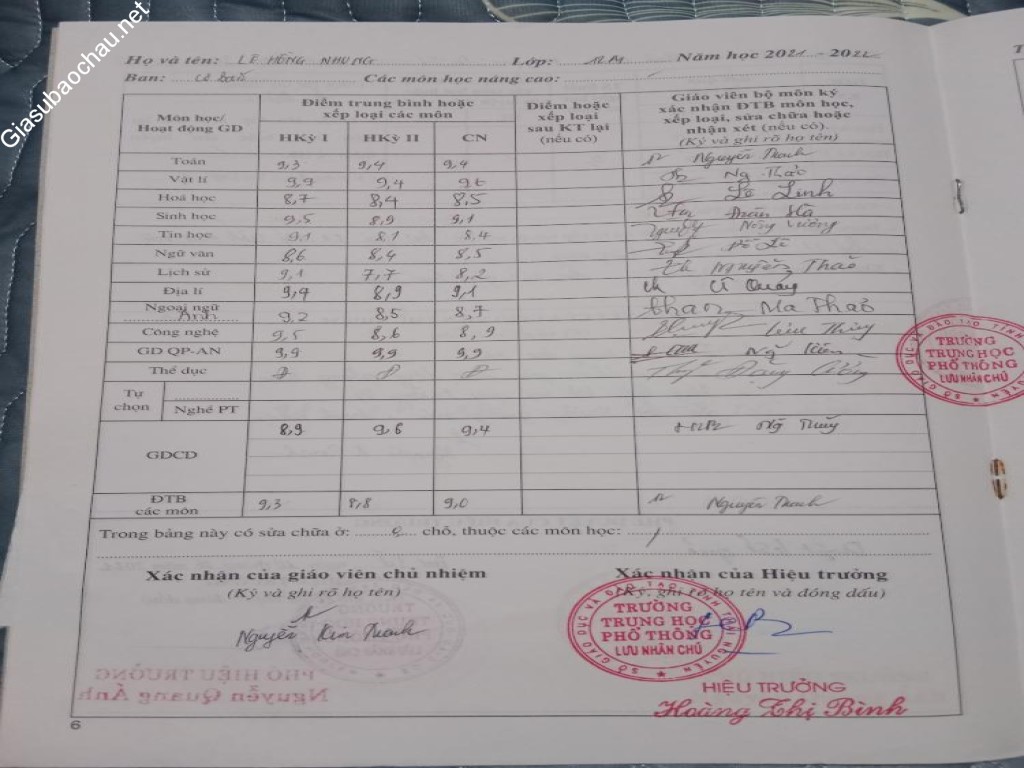 Giasubaochau.net
Họ và tên: LÊ HỒNG NHUNG Lớp: Năm học 2021 - 2022
Ban: Cơ bản Các môn học nâng cao: /
Môn học/ Hoạt động GD
Điểm trung bình hoặc xếp loại các môn
HKỳ I HKỳ II CN
Điểm hoặc xếp loại sau KT lại (nếu có)
Giáo viên bộ môn ký xác nhận ĐTB môn học, xếp loại, sửa chữa hoặc nhận xét (nếu có).
(Ký và ghi rõ họ tên)
Toán 9,3 9,4 9,4 Nguyễn Thanh
Vật lí 9,9 9,4 9,6 Ng Thảo
Hoá học 8,7 8,4 8,5 Lê Linh
Sinh học 9,5 8,9 9,1 Hà
Tin học 9,1 8,1 8,4
Ngữ văn 8,6 8,4 8,5
Lịch sử 9,1 7,7 8,2 Nguyễn Thảo
Địa lí 9,4 8,9 9,1
Ngoại ngữ Anh 9,2 8,5 8,7 Ma Thảo
Công nghệ 9,5 8,6 8,9
GD QP-AN 9,9 9,9 9,9
Thể dục Đ Đ Đ
Tự chọn
Nghề PT
GDCD 8,9 9,6 9,4
ĐTB các môn 9,3 8,8 9,0 Nguyễn Thanh
Trong bảng này có sửa chữa ở: chỗ, thuộc các môn học: /
Xác nhận của giáo viên chủ nhiệm
(Ký và ghi rõ họ tên)
Nguyễn Kim Thanh
Xác nhận của Hiệu trưởng
(Ký, ghi rõ họ tên và đóng dấu)
SỞ GIÁO DỤC VÀ ĐÀO TẠO TỈNH THÁI NGUYÊN
TRƯỜNG
TRUNG HỌC
PHỔ THÔNG
LƯU NHÂN CHÚ
HIỆU TRƯỞNG
Hoàng Thị Bình
PHÓ HIỆU TRƯỞNG
Nguyễn Quang Ánh
6
SỞ GIÁO DỤC VÀ ĐÀO TẠO TỈNH
TRƯỜNG
TRUNG HỌC
PHỔ THÔNG
LƯU NHÂN CHÚ